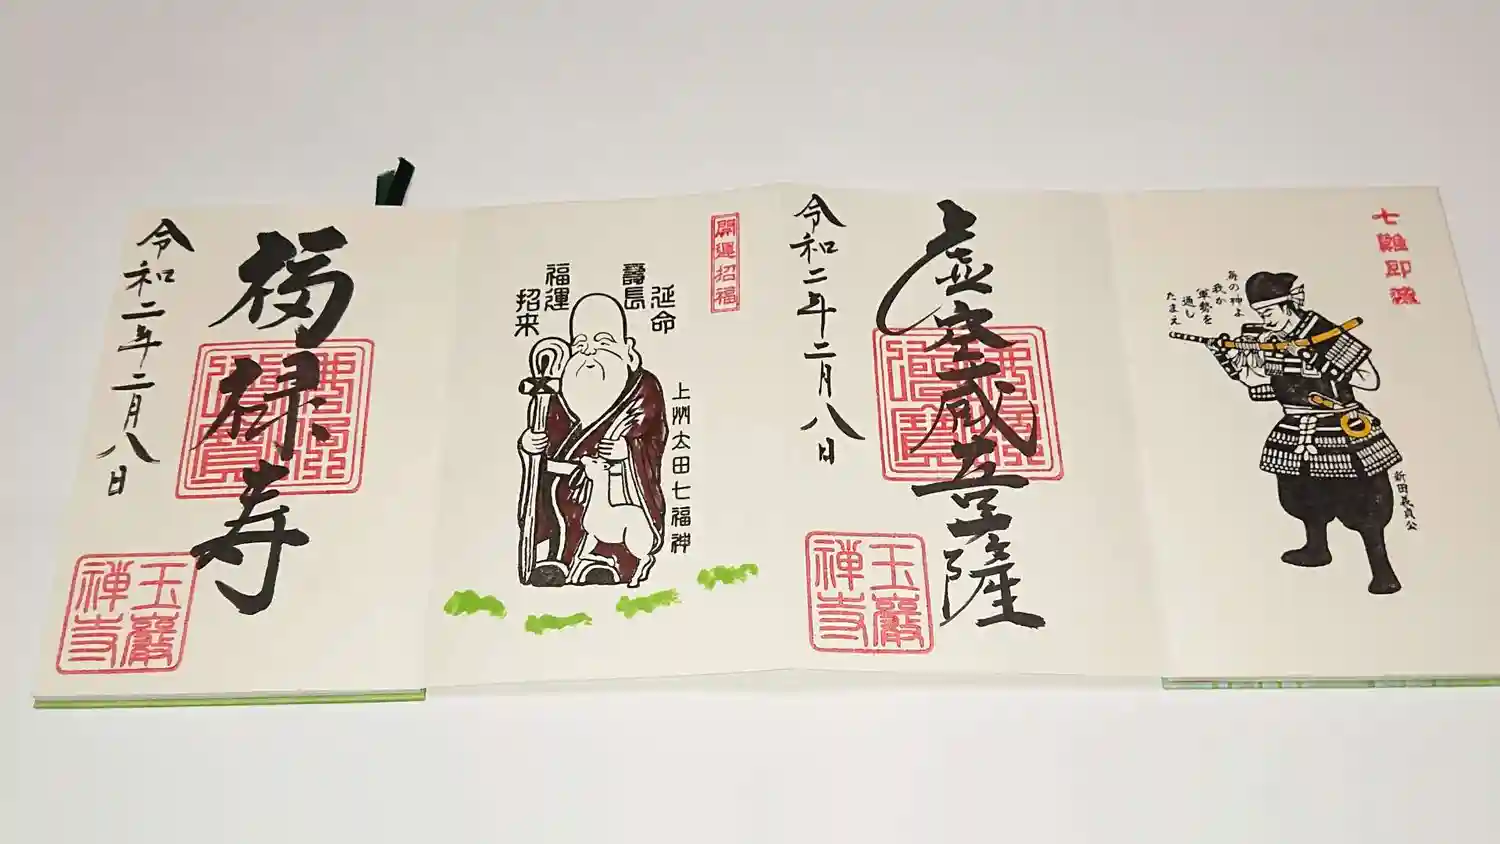 七難即滅
海の神よ
我が
軍勢を
通し
たまえ
新田義貞公
虚空蔵菩薩
佛法僧寶
令和二年二月八日
玉巖禅寺
開運招福
延命
壽長
福運
招来
上州太田七福神
福禄寿
佛法僧寶
令和二年二月八日
玉巖禅寺